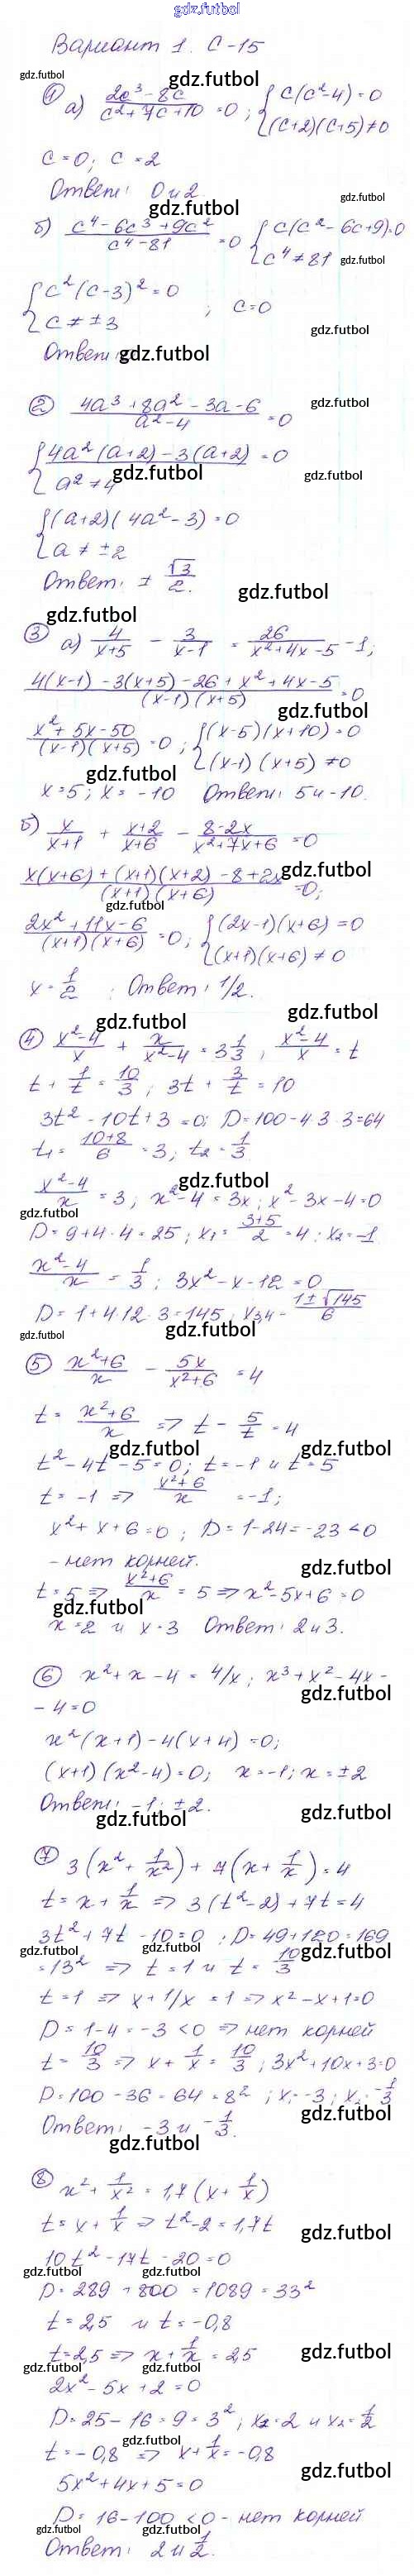 gdz.futbol
Вариант 1. С-15
gdz.futbol
gdz.futbol
① а) 2c³-8c / c²+7c+10 = 0 ; { c(c²-4)=0
(c+2)(c+5)≠0
c=0; c=2
Ответ: 0 и 2.
gdz.futbol
gdz.futbol
б) c⁴-6c³+9c² / c⁴-81 = 0 { c(c²-6c+9)=0
c⁴≠81
gdz.futbol
{ c²(c-3)²=0
c≠±3 ; c=0
gdz.futbol
Ответ:
gdz.futbol
② 4a³+8a²-3a-6 / a²-4 = 0
gdz.futbol
{ 4a²(a+2)-3(a+2) = 0
a²≠4
gdz.futbol
gdz.futbol
{ (a+2)(4a²-3)=0
a≠±2
Ответ: ± √3/2.
gdz.futbol
gdz.futbol
③ а) 4/x+5 - 3/x-1 = 26/x²+4x-5 -1;
4(x-1)-3(x+5)-26+x²+4x-5 / (x-1)(x+5) = 0
gdz.futbol
x²+5x-50 / (x-1)(x+5) = 0 ; { (x-5)(x+10)=0
(x-1)(x+5)≠0
gdz.futbol
x=5; x=-10 Ответ: 5 и -10.
б) x/x+1 + x+2/x+6 - 8-2x/x²+7x+6 = 0
gdz.futbol
x(x+6)+(x+1)(x+2)-8+2x / (x+1)(x+6) = 0;
gdz.futbol
2x²+11x-6 / (x+1)(x+6) = 0; { (2x-1)(x+6)=0
(x+1)(x+6)≠0
x=1/2 ; Ответ: 1/2.
gdz.futbol
gdz.futbol
④ x²-4/x + x/x²-4 = 3 1/3 ; x²-4/x = t
t + 1/t = 10/3 ; 3t + 3/t = 10
3t²-10t+3=0; D=100-4·3·3=64
t₁ = 10+8/6 = 3; t₂ = 1/3
gdz.futbol
x²-4/x = 3; x²-4=3x; x²-3x-4=0
gdz.futbol
D=9+4·4=25; x₁ = 3+5/2 = 4; x₂=-1
x²-4/x = 1/3 ; 3x²-x-12=0
D=1+4·12·3=145; x₃,₄ = 1±√145/6
gdz.futbol
gdz.futbol
⑤ x²+6/x - 5x/x²+6 = 4
t = x²+6/x => t - 5/t = 4
gdz.futbol
gdz.futbol
t²-4t-5=0; t=-1 и t=5
t=-1 => x²+6/x = -1;
x²+x+6=0; D=1-24=-23<0
- нет корней.
gdz.futbol
t=5 => x²+6/x = 5 => x²-5x+6=0
gdz.futbol
x=2 и x=3 Ответ: 2 и 3.
⑥ x²+x-4 = 4/x; x³+x²-4x-
gdz.futbol
-4=0
x²(x+1)-4(x+4)=0;
(x+1)(x²-4)=0; x=-1; x=±2
Ответ: -1; ±2.
gdz.futbol
gdz.futbol
⑦ 3(x²+1/x²)+7(x+1/x)=4
t=x+1/x => 3(t²-2)+7t=4
3t²+7t-10=0; D=49+120=169
gdz.futbol
gdz.futbol
gdz.futbol
=13² => t=1 и t=10/3
t=1 => x+1/x=1 => x²-x+1=0
D=1-4=-3<0 => нет корней
t=10/3 => x+1/x=10/3; 3x²+10x+3=0
D=100-36=64=8²; x₁=-3; x₂=-1/3
gdz.futbol
Ответ: -3 и -1/3.
gdz.futbol
⑧ x²+1/x²=1,7(x+1/x)
t=x+1/x => t²-2=1,7t
gdz.futbol
10t²-17t-20=0
gdz.futbol
gdz.futbol
D=289+800=1089=33²
t=2,5 и t=-0,8
t=2,5 => x+1/x=2,5
gdz.futbol
gdz.futbol
gdz.futbol
2x²-5x+2=0
D=25-16=9=3²; x₂=2 и x₂=1/2
gdz.futbol
t=-0,8 => x+1/x=-0,8
gdz.futbol
5x²+4x+5=0
D=16-100<0 - нет корней
gdz.futbol
gdz.futbol
Ответ: 2 и 1/2.